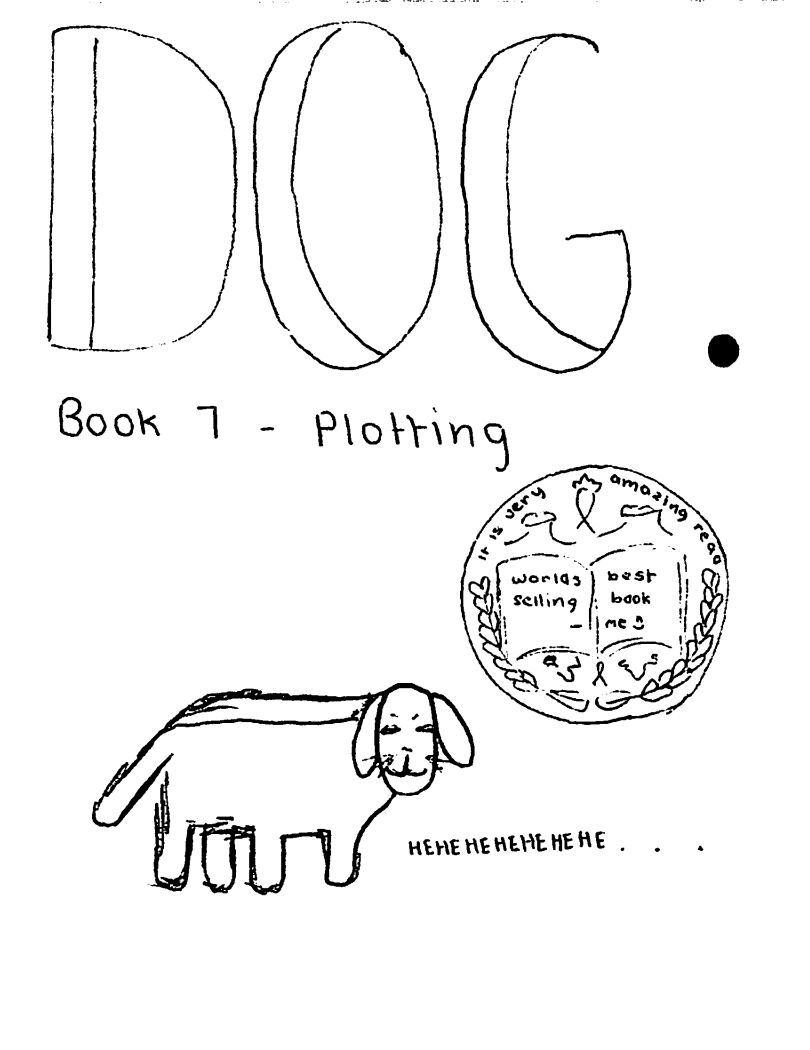 DOG.
Book 7 - Plotting
it is very amazing read
worlds best
selling book
- me
HEHEHEHEHEHEHE . . .